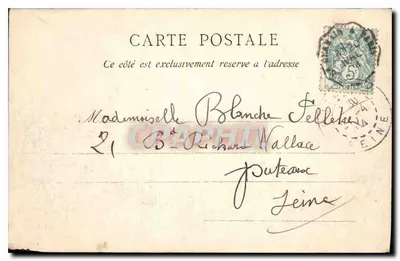 CARTE POSTALE
Ce côté est exclusivement reserve a l'adresse
Mademoiselle Blanche Pelleke
21 Bd Richard Wallace
puteaux
Seine